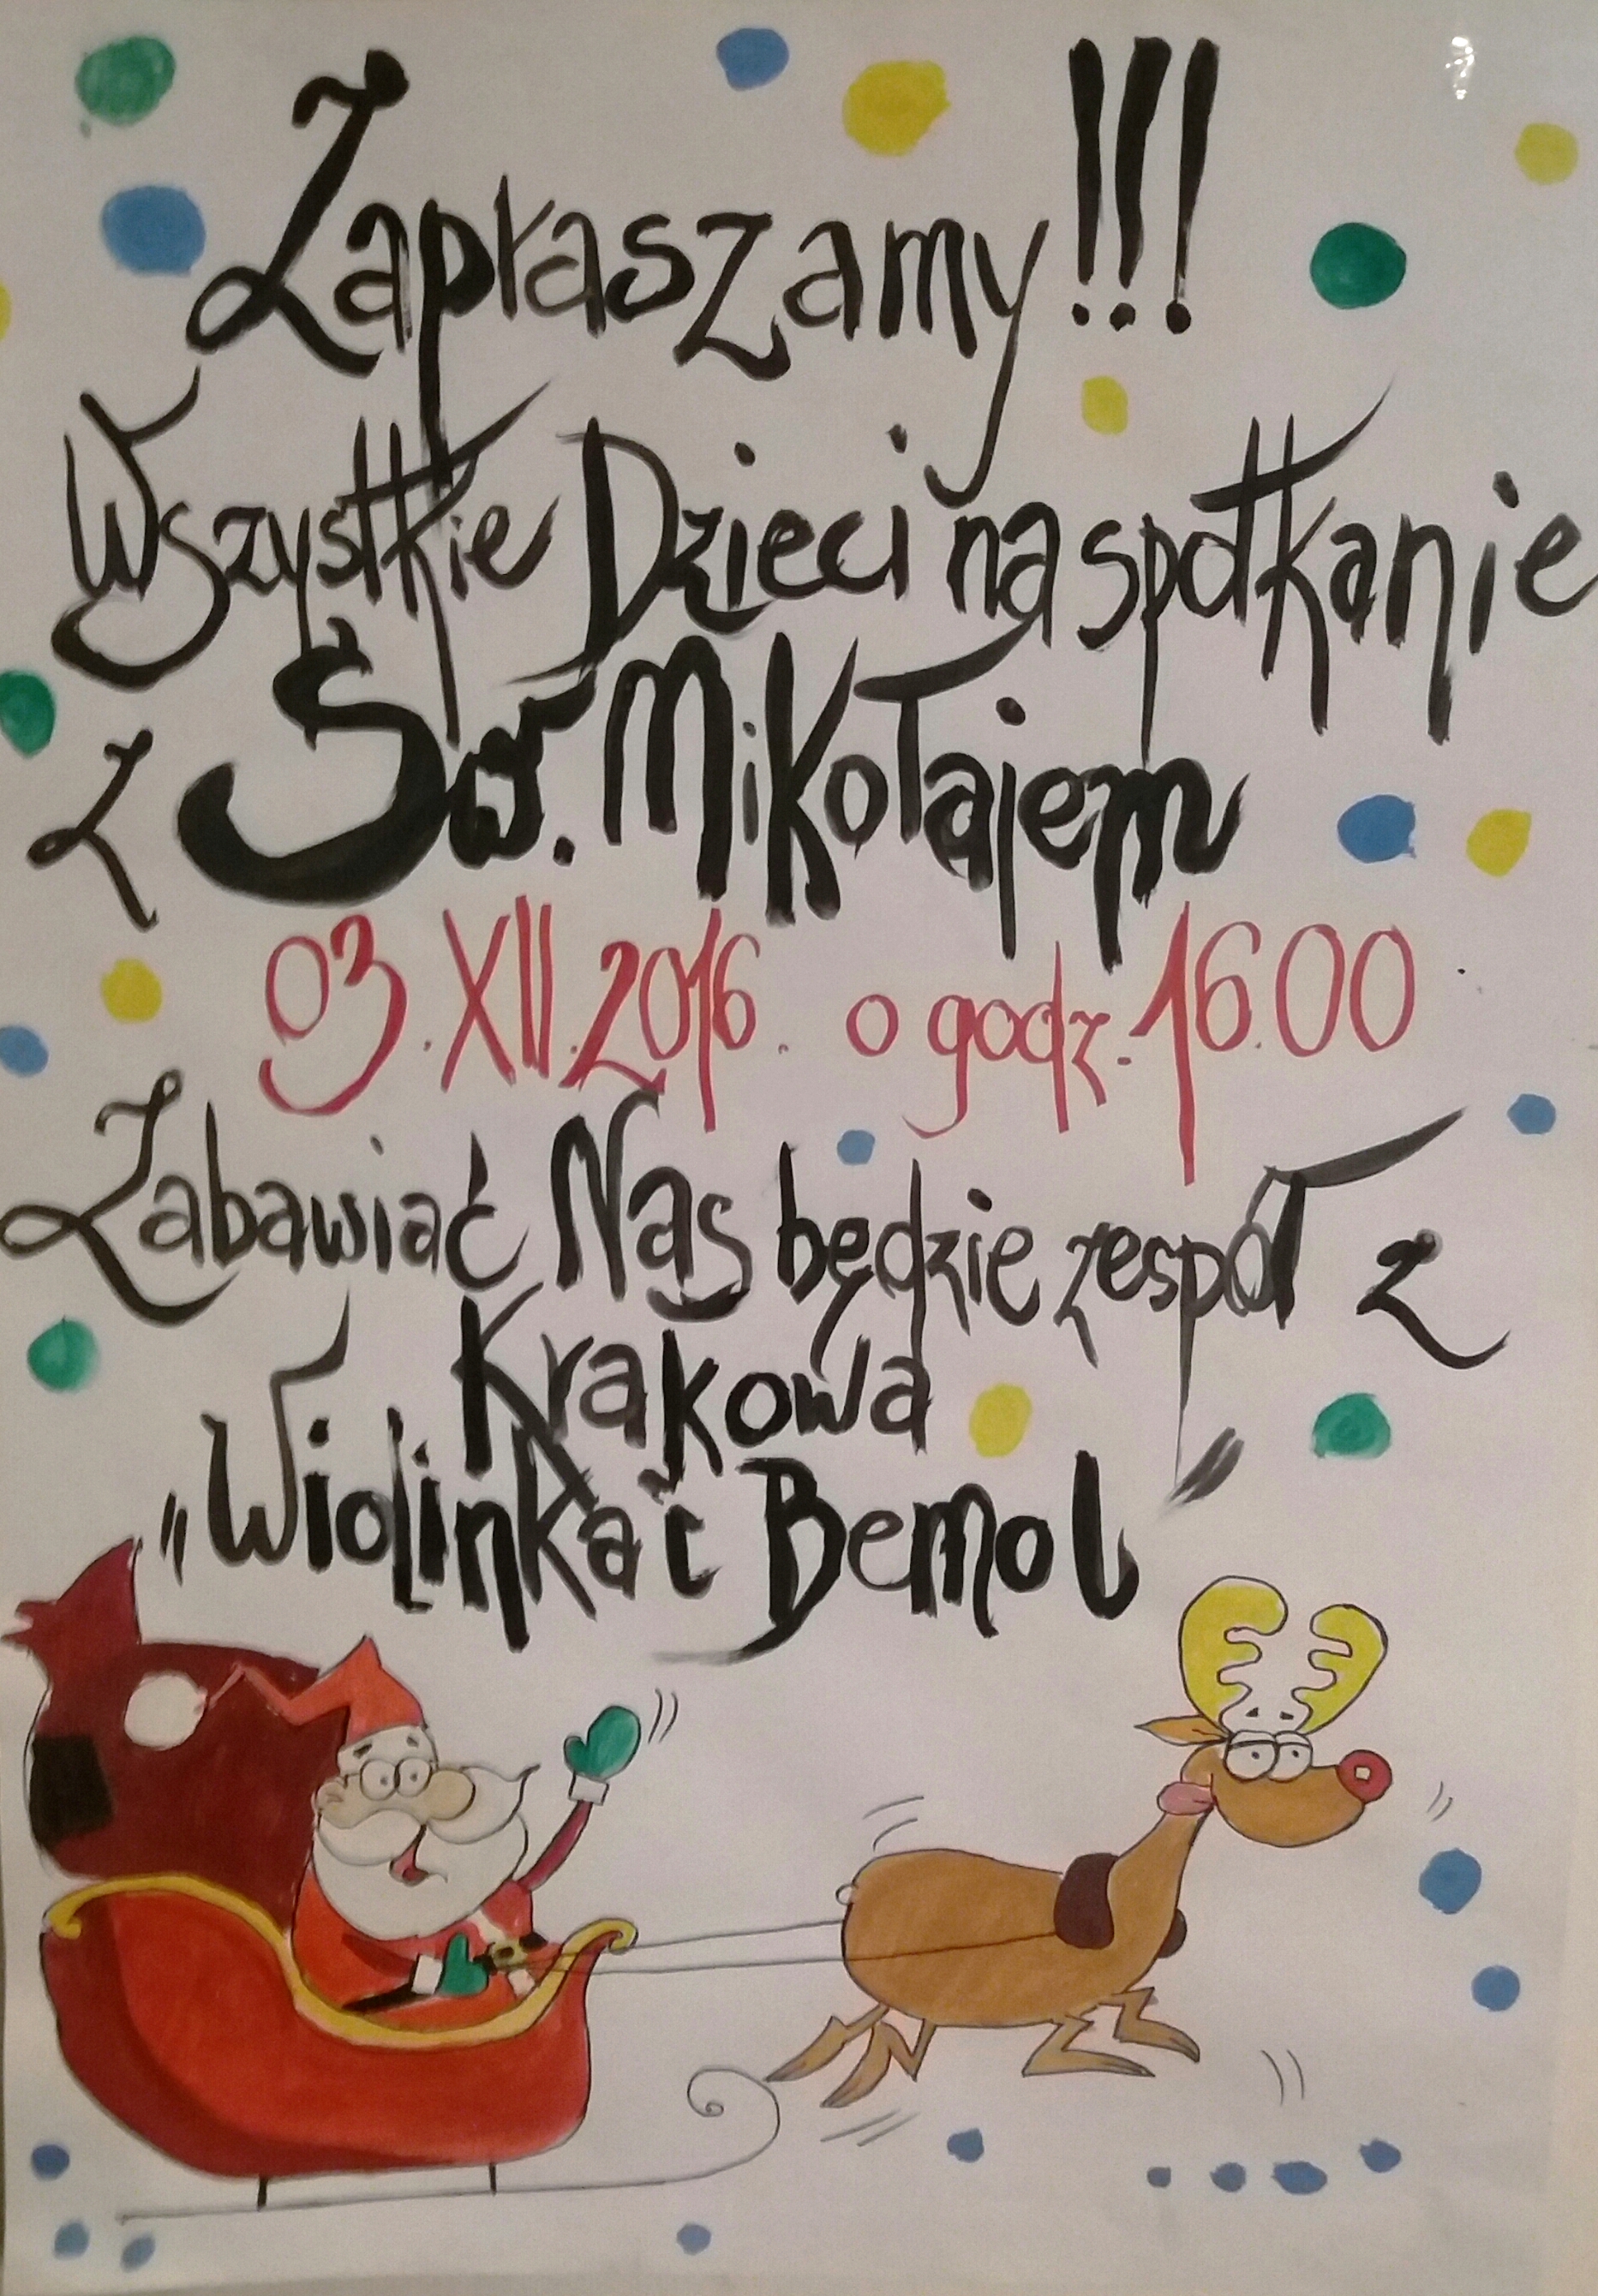 Zapraszamy!!!
Wszystkie Dzieci na spotkanie
z Św. Mikołajem
03.XII.2016. o godz. 16.00
Zabawiać Nas będzie zespół z
Krakowa
„Wiolinka i Bemol”